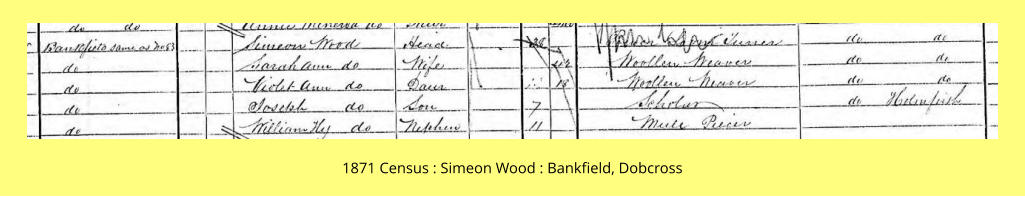 do do Annie Minerva do
Bankfield same as No 83 Simeon Wood Head do do
do Sarah Ann do Wife Woollen Weaver do do
do Violet Ann do Daur 18 Woollen Weaver do do
do Joseph do Son 7 Scholar do Holmfirth
do William Hy do Nephew 11 Mule Piecer
1871 Census : Simeon Wood : Bankfield, Dobcross